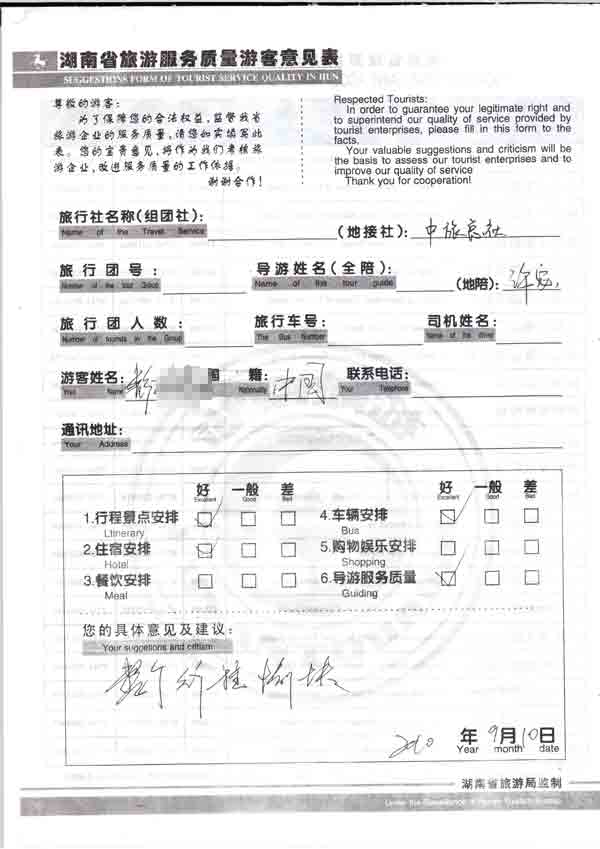 湖南省旅游服务质量游客意见表
SUGGESTIONS FORM OF TOURIST SERVICE QUALITY IN HUN
尊敬的游客:
为了保障您的合法权益,监督我省
旅游企业的服务质量,请您如实填写此
表。您的宝贵意见,将作为我们考核旅
游企业,改进服务质量的工作依据。
谢谢合作!
Respected Tourists:
In order to guarantee your legitimate right and
to superintend our quality of service provided by
tourist enterprises, please fill in this form to the
facts.
Your valuable suggestions and criticism will be
the basis to assess our tourist enterprises and to
improve our quality of service
Thank you for cooperation!
旅行社名称(组团社): (地接社): 中旅良社
Name of the Travel Service
旅行团号: 导游姓名(全陪): (地陪): 许
Number of the tour Group Name of this tour guide
旅行团人数: 旅行车号: 司机姓名:
Number of tourists in the Group The Bus Number Name of the driver
游客姓名: 国籍: 中国 联系电话:
Your Name Nationality Your Telephone
通讯地址:
Your Address
好 一般 差 好 一般 差
Excellent Good Bad Excellent Good Bad
1.行程景点安排 4.车辆安排
Ltinerary Bus
2.住宿安排 5.购物娱乐安排
Hotel Shopping
3.餐饮安排 6.导游服务质量
Meal Guiding
您的具体意见及建议:
Your suggetions and critiam
整个行程愉快
2010 年 9月10日
Year month date
湖南省旅游局监制